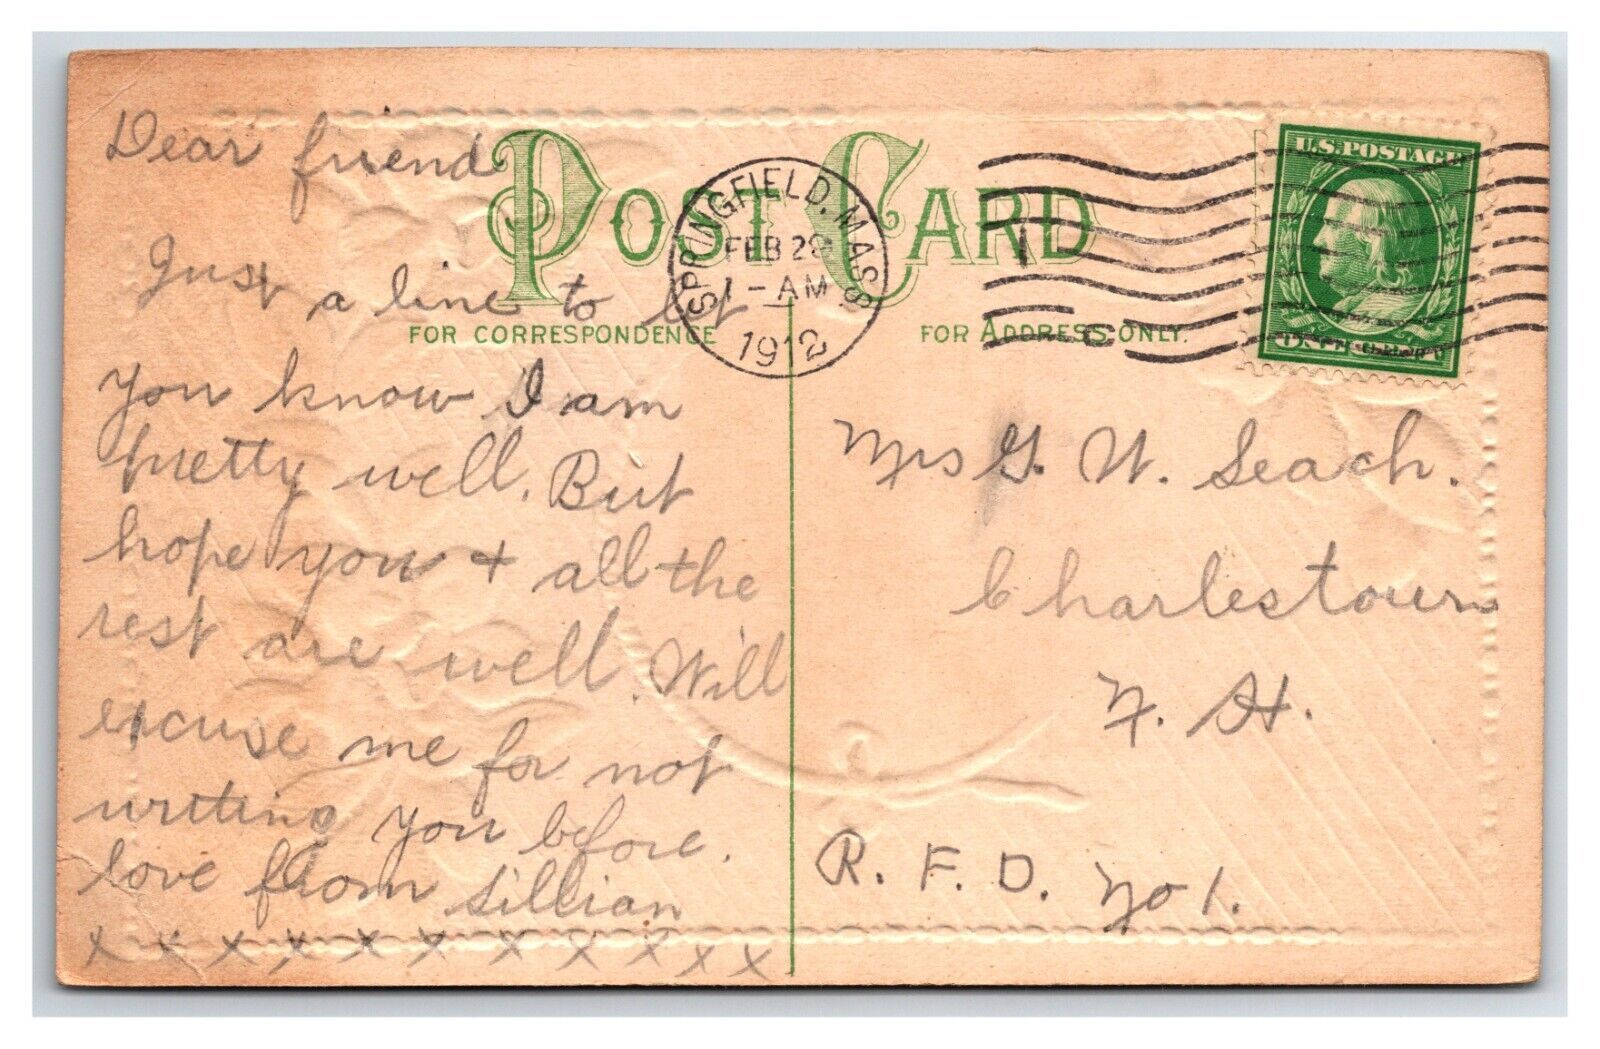 Dear friend
Just a line to let
you know I am
pretty well. But
hope you + all the
rest are well. Will
excuse me for not
writing you before.
love from Lillian
x x x x x x x x x x x
POST CARD
FOR CORRESPONDENCE
FOR ADDRESS ONLY.
SPRINGFIELD, MASS.
FEB 28
1 - AM
1912
U.S. POSTAGE
Mrs G. W. Seach.
Charlestown
N. H.
R. F. D. No 1.